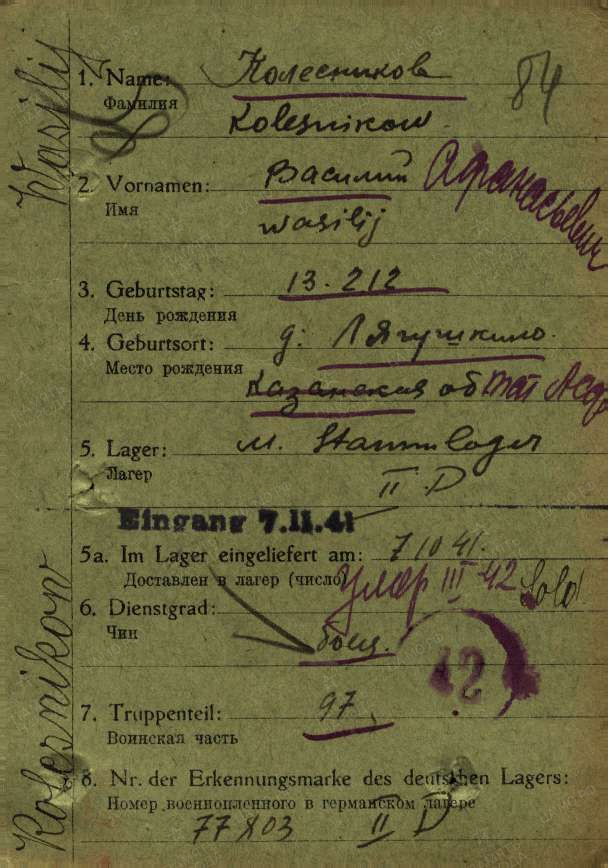 Wasilij
Kolesnikow
84
1. Name: Колесников
Фамилия
Kolesnikow.
2. Vornamen: Василий Афанасьевич
Имя
Wasilij
3. Geburtstag: 13. 2 12
День рождения
4. Geburtsort: д. Лягушкино.
Место рождения
Казанская об Тат
5. Lager: M. Stammlager
Лагер
II D
Eingang 7.11.41
5a. Im Lager eingeliefert am: 7 10 41.
Доставлен в лагер (число)
умер III 42 Sold
6. Dienstgrad:
Чин
боец.
42
7. Truppenteil: 97
Воинская часть
8. Nr. der Erkennungsmarke des deutschen Lagers:
Номер военнопленного в германском лагере
77803 II D